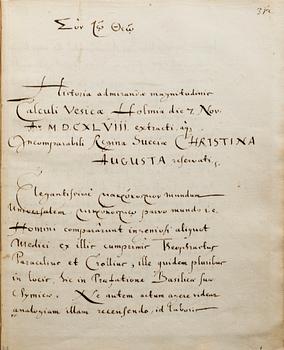 Σὺν τῷ Θεῷ
Historia admirandæ magnitudinis
Calculi Vesicæ Holmiæ die 7 Nov.
MDCXLVIII extracti,
Incomparabili Regina Sueciæ CHRISTINA
AUGUSTA reservati.
Elegantissimè μακρόκοσμον mundum
Universalem μικροκόσμῳ parvo mundo i.e.
Homini compararunt ingeniosi aliquot
Medici ex illis cumprimis Theophrastus
Paracelsus et Crollius, ille quidem pluribus
in locis, hic in Præfatione Basilicæ suæ
Chymicæ. Ne autem actum agere videar
analogiam illam recensendo, id